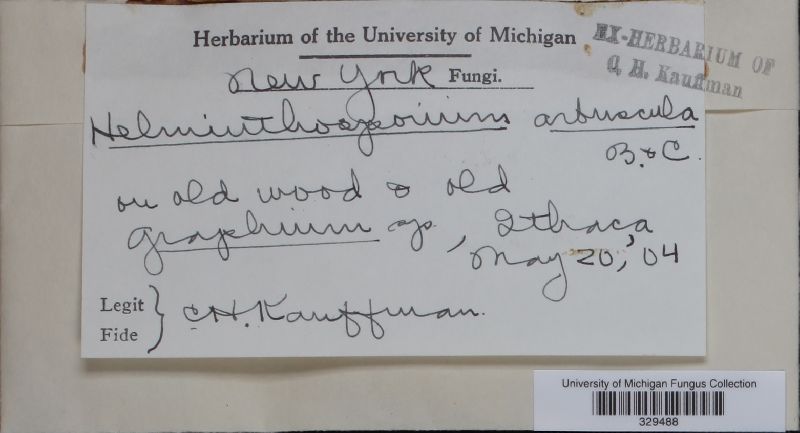 Herbarium of the University of Michigan
EX-HERBARIUM OF
C. H. Kauffman
New York Fungi.
Helminthosporium arbuscula
B. & C.
on old wood & old
Graphium sp., Ithaca
May 20, '04
Legit
Fide
CH. Kauffman.
University of Michigan Fungus Collection
329488